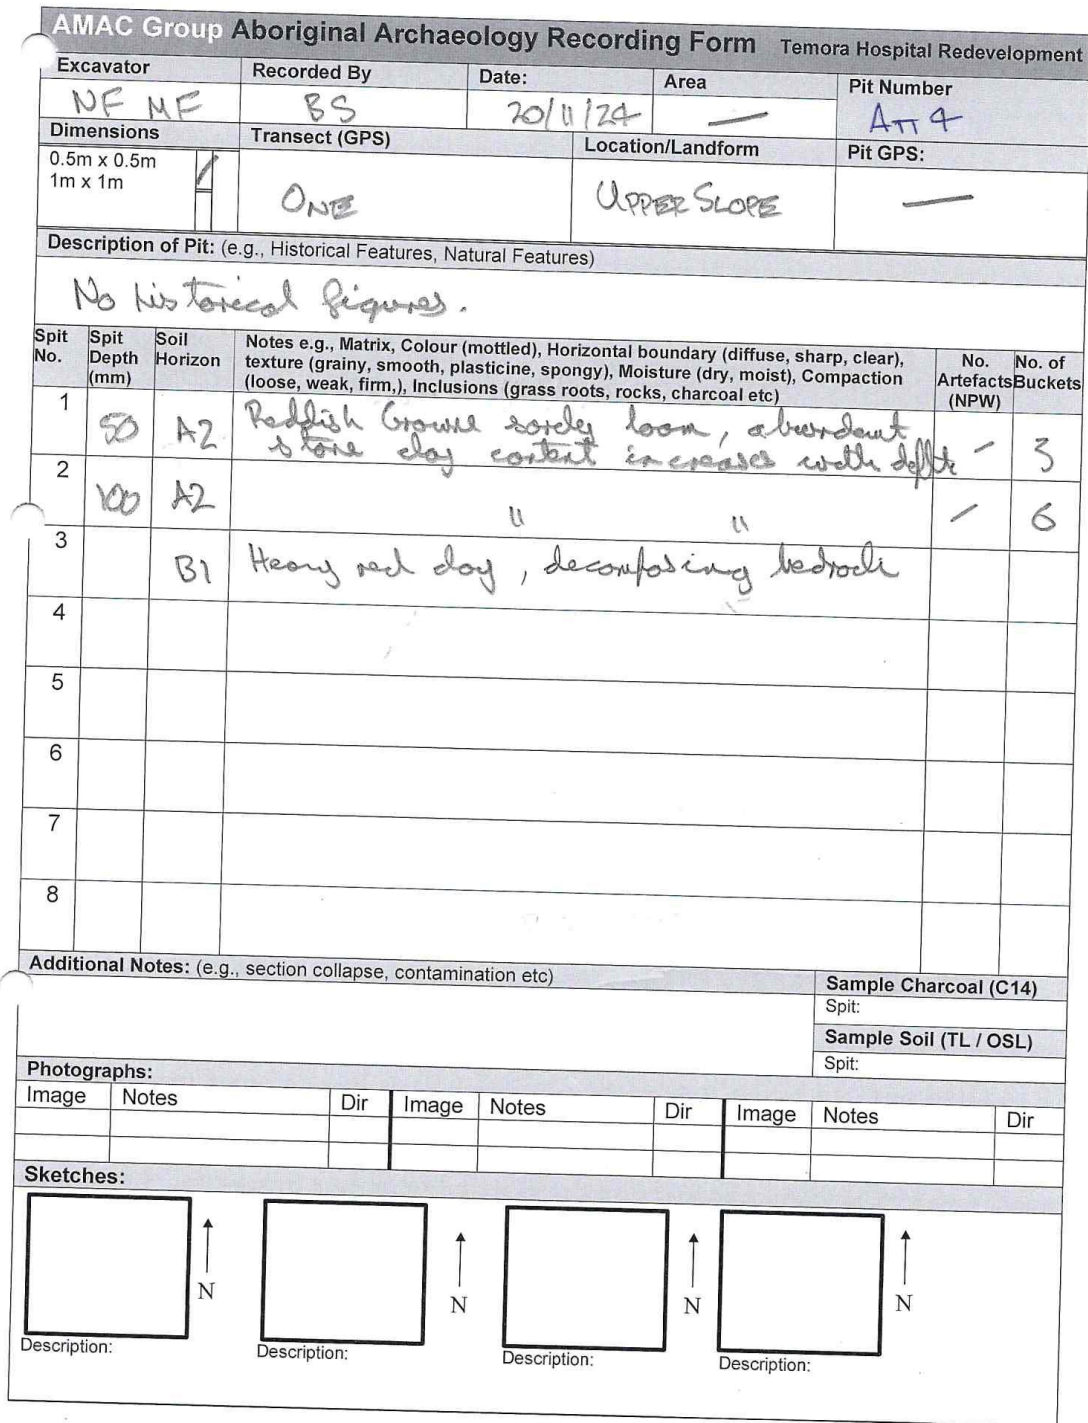 AMAC Group Aboriginal Archaeology Recording Form Temora Hospital Redevelopment
Excavator Recorded By Date: Area Pit Number
NF MF BS 20/11/24 — ATT 4
Dimensions Transect (GPS) Location/Landform Pit GPS:
0.5m x 0.5m /
1m x 1m
ONE UPPER SLOPE —
Description of Pit: (e.g., Historical Features, Natural Features)
No historical figures.
Spit No. Spit Depth (mm) Soil Horizon Notes e.g., Matrix, Colour (mottled), Horizontal boundary (diffuse, sharp, clear), texture (grainy, smooth, plasticine, spongy), Moisture (dry, moist), Compaction (loose, weak, firm,), Inclusions (grass roots, rocks, charcoal etc) No. Artefacts (NPW) No. of Buckets
1 50 A2 Reddish Growne sordy loom, abundant
stone clay content increases with depth – 3
2 100 A2 " " / 6
3 B1 Heavy red clay, decomposing bedrock
4
5
6
7
8
Additional Notes: (e.g., section collapse, contamination etc)
Sample Charcoal (C14)
Spit:
Sample Soil (TL / OSL)
Spit:
Photographs:
Image Notes Dir Image Notes Dir Image Notes Dir
Sketches:
N N N N
Description: Description: Description: Description: